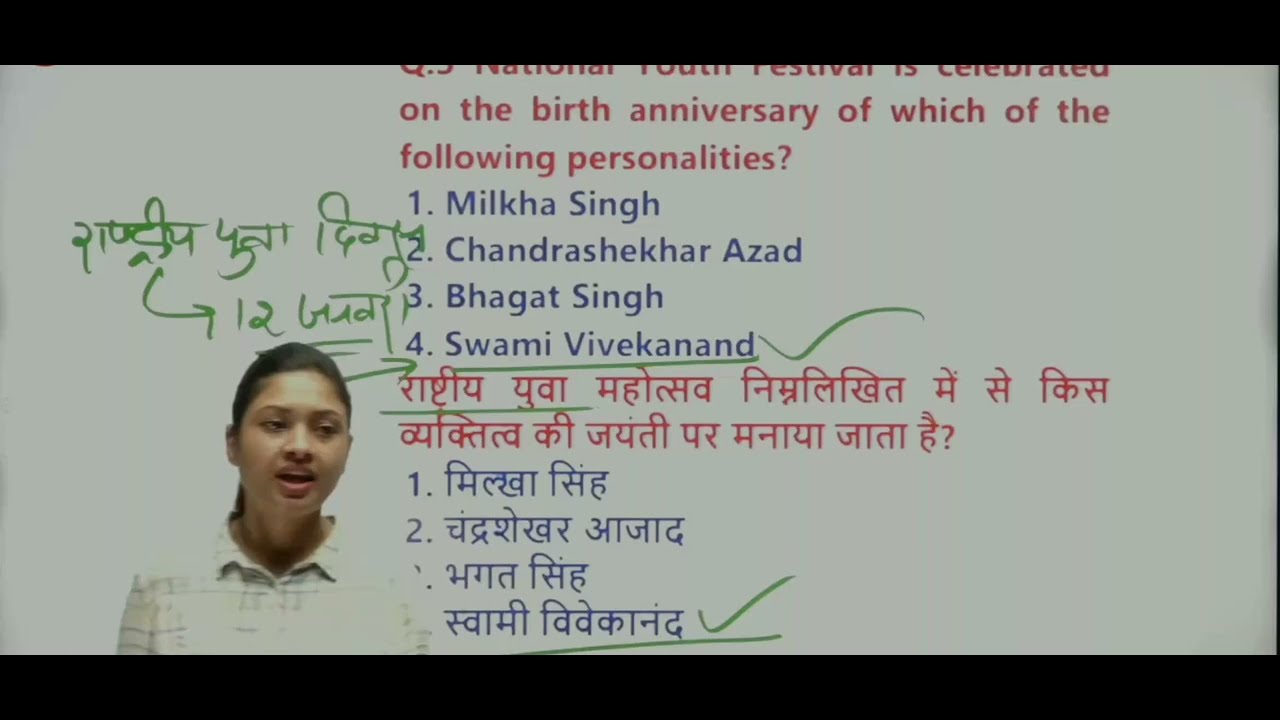 Q.5 National Youth Festival is celebrated
on the birth anniversary of which of the
following personalities?
1. Milkha Singh
2. Chandrashekhar Azad
3. Bhagat Singh
4. Swami Vivekanand
राष्ट्रीय युवा दिवस
12 जनवरी
राष्ट्रीय युवा महोत्सव निम्नलिखित में से किस
व्यक्तित्व की जयंती पर मनाया जाता है?
1. मिल्खा सिंह
2. चंद्रशेखर आजाद
भगत सिंह
स्वामी विवेकानंद